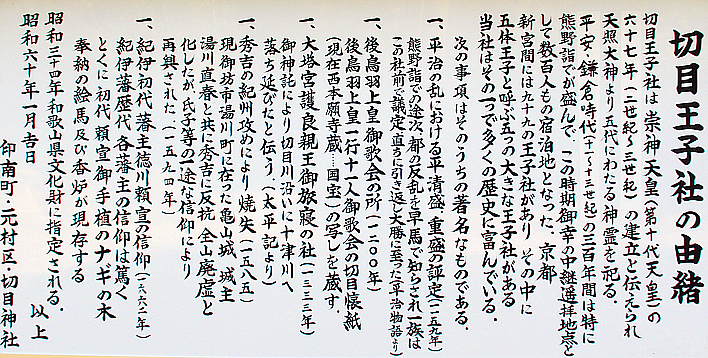 切目王子社の由緒
切目王子社は崇神天皇(第十代天皇)の
六十七年(二世紀〜三世紀)の建立と伝えられ
天照大神より五代にわたる神霊を祀る。
平安・鎌倉時代(十一〜十三世紀)の三百年間は特に
熊野詣でが盛んで、この時期御幸の中継遥拝地点と
して数百人もの宿泊地となった。京都
新宮間には九十九の王子社があり その中に
五体王子と呼ぶ五つの大きな王子社がある
当社はその一つで多くの歴史に富んでいる。
次の事項はそのうちの著名なものである。
一、平治の乱における平清盛、重盛の評定(一一五九年)
熊野詣での途次、都の反乱を早馬で知らされ一族は
この社前で議定、直ちに引き返し大勝に至った(平治物語より)
一、後鳥羽上皇御歌会の所(一二〇〇年)
後鳥羽上皇一行十一人御歌会の切目懐紙
(現在西本願寺蔵…国宝)の写しを蔵す。
一、大塔宮護良親王御旅寝の社(一三三三年)
御神託により切目川沿いに十津川へ
落ち延びたと伝う。(太平記より)
一、秀吉の紀州攻めにより焼失(一五八五)
現御坊市湯川町に在った亀山城、城主
湯川直春と共に秀吉に反抗、全山廃虚と
化したが、氏子等の一途な信仰により
再興された(一五九四年)
一、紀伊初代藩主徳川頼宣の信仰(一六六二年)
紀伊藩歴代各藩主の信仰は篤く
とくに初代頼宣御手植のナギの木
奉納の絵馬及び香炉が現存する
昭和三十四年和歌山県文化財に指定される。
以上
昭和六十年一月吉日
印南町・元村区・切目神社